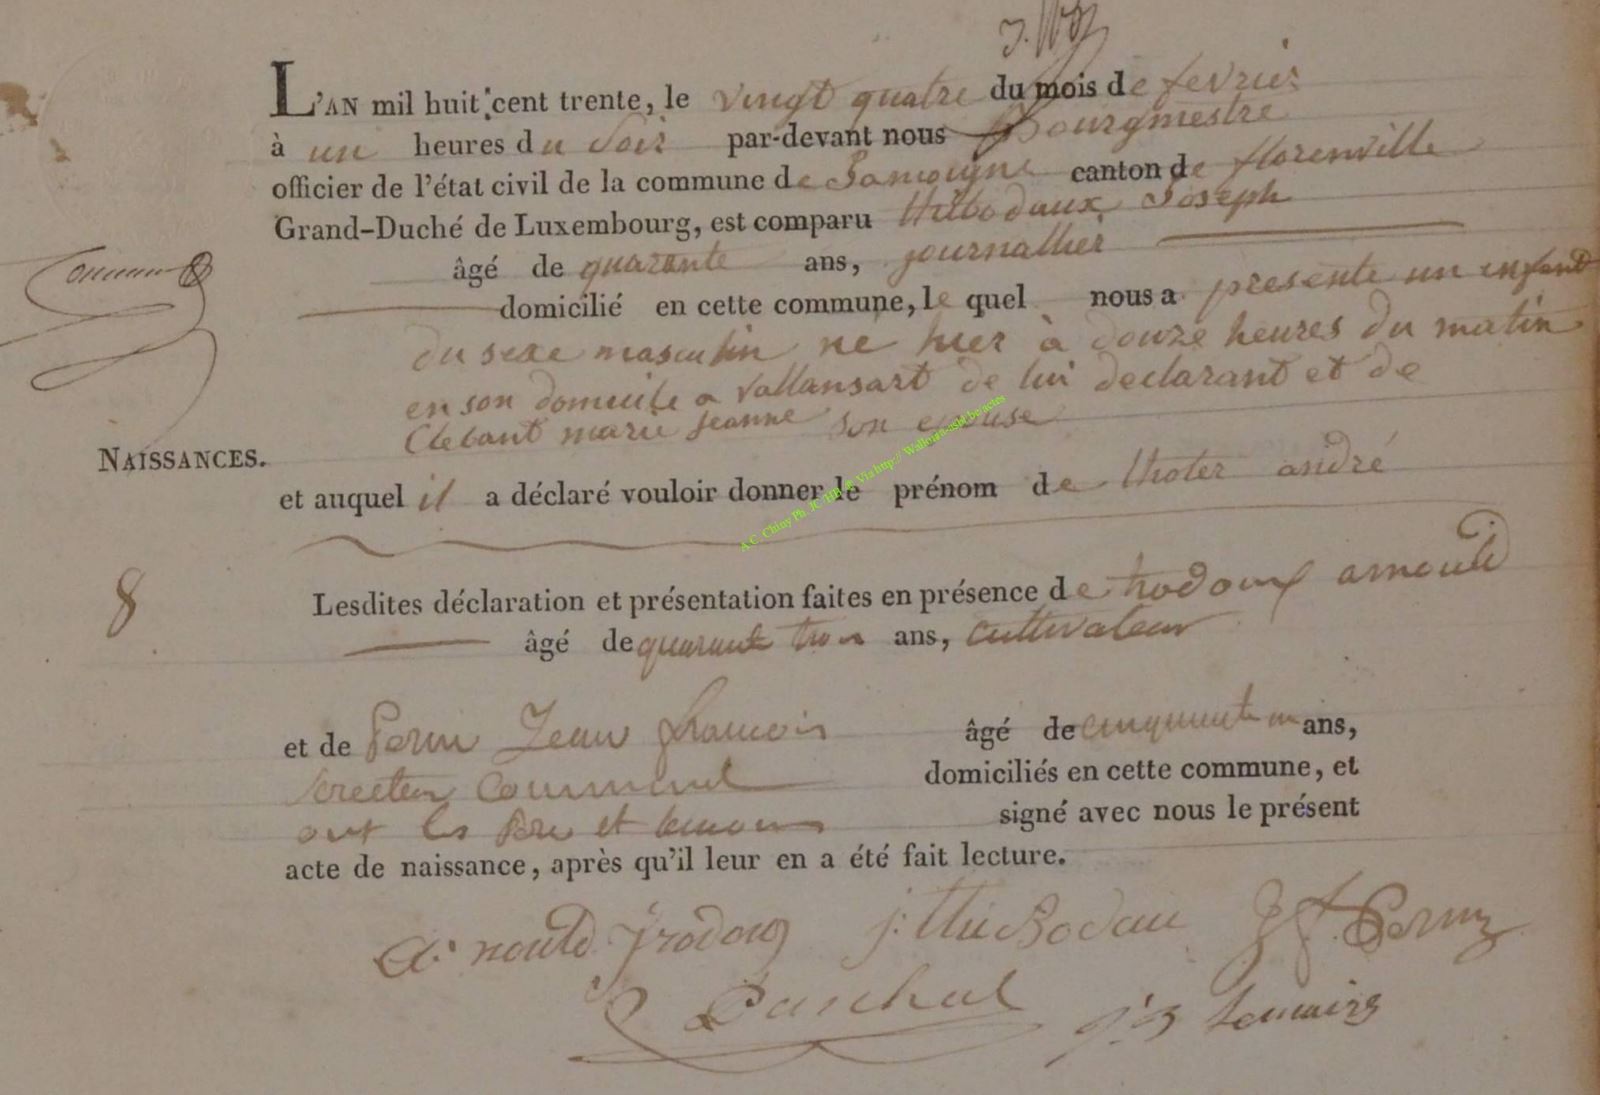 L'AN mil huit cent trente, le vingt quatre du mois de fevrier
à un heures du soir par-devant nous Bourgmestre
officier de l'état civil de la commune de Jamoigne canton de florenville
Grand-Duché de Luxembourg, est comparu thibodaux Joseph
âgé de quarante ans, journallier
domicilié en cette commune, le quel nous a presente un enfant
du sexe masculin ne hier à douze heures du matin
en son domicile a vallansart de lui declarant et de
Clebant marie jeanne son epouse
NAISSANCES.
et auquel il a déclaré vouloir donner le prénom de andré
A.C. Chiny Ph. JC /HB & Via http:// Wallonia-asbl.be/actes
8
Lesdites déclaration et présentation faites en présence de trodoux arnould
âgé de quarante trois ans, cultivateur
et de Perin Jean francois âgé de cinquante un ans,
domiciliés en cette commune, et
ont les pere et temoins signé avec nous le présent
acte de naissance, après qu'il leur en a été fait lecture.
Arnould Trodoux j: thiBodau J f Perin
Paschal Lemaire